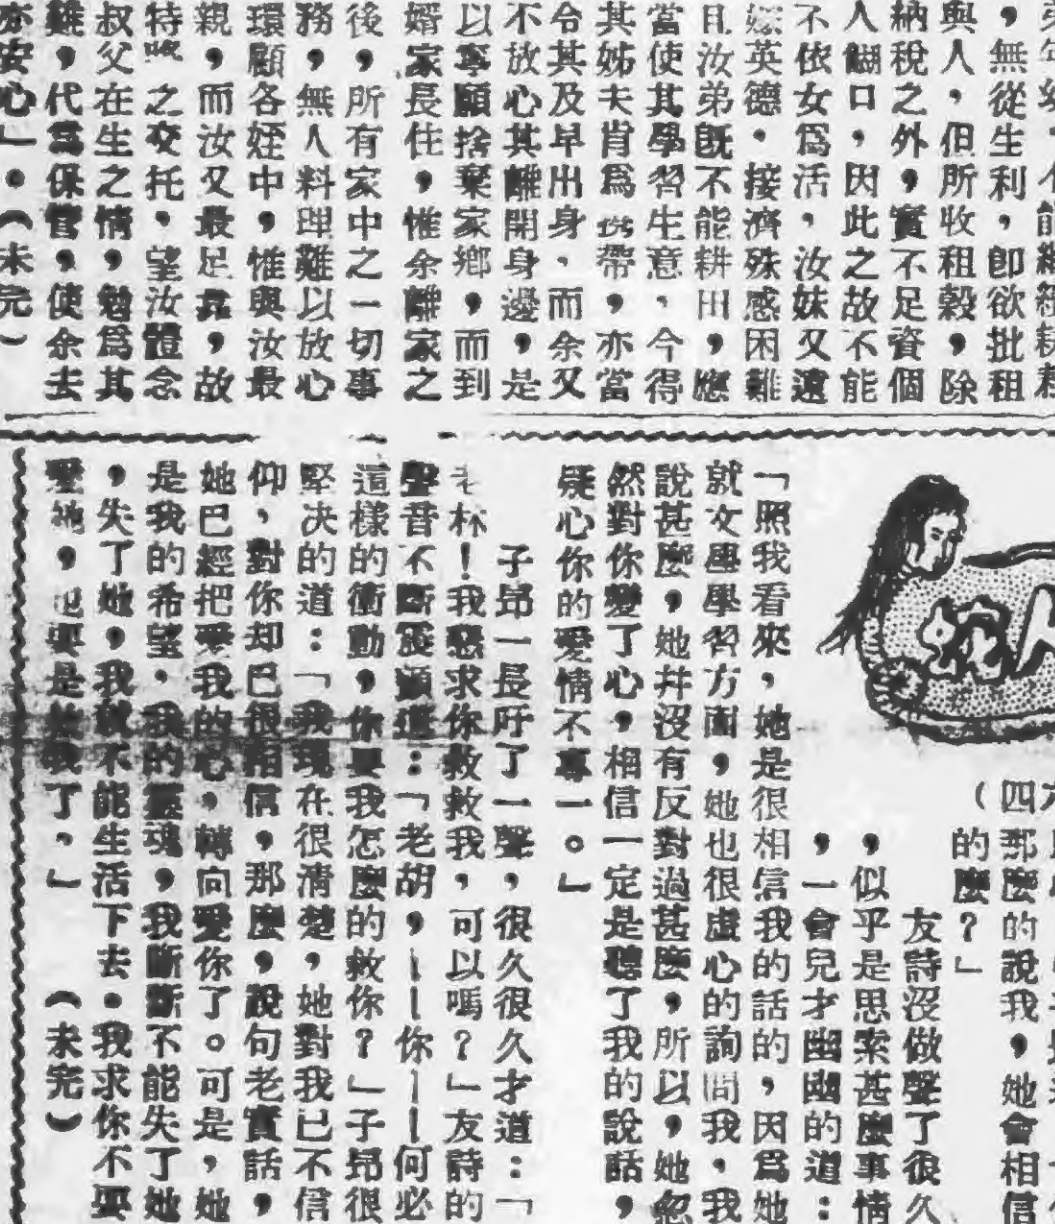 ，無從生利，卽欲批租
與人，但所收租穀，除
納稅之外，實不足資個
人餬口，因此之故不能
不依女爲活，汝妹又遠
嫁英德，接濟殊感困難
且汝弟旣不能耕田，應
當使其學習生意，今得
其姊夫肯爲携帶，亦當
令其及早出身，而余又
不放心其離開身邊，是
以寧願捨棄家鄉，而到
婿家長住，惟余離家之
後，所有家中之一切事
務，無人料理難以放心
環顧各姪中，惟與汝最
親，而汝又最足靠，故
特 之交托，望汝體念
叔父在生之情，勉爲其
難，代爲保管，使余去
亦安心」。（未完）
蛇人
（四
那麼的說我，她會相信
的麼？」
友詩沒做聲了很久
，似乎是思索甚麼事情
，一會兒才幽幽的道：
「照我看來，她是很相信我的話的，因爲她
就文學學習方面，她也很虛心的詢問我，我
說甚麼，她幷沒有反對過甚麼，所以，她忽
然對你變了心，相信一定是聽了我的說話，
疑心你的愛情不專一。」
子昂一長吁了一聲，很久很久才道：「
老林！我懇求你救救我，可以嗎？」友詩的
聲音不斷震顫道：「老胡，——你——何必
這樣的衝動，你要我怎麼的救你？」子昂很
堅决的道：「我現在很清楚，她對我已不信
仰，對你却巳很相信，那麼，說句老實話，
她巳經把愛我的心，轉向愛你了。可是，她
是我的希望，我的靈魂，我斷斷不能失了她
，失了她，我就不能生活下去。我求你不要
愛她，也要是救我了。」（未完）